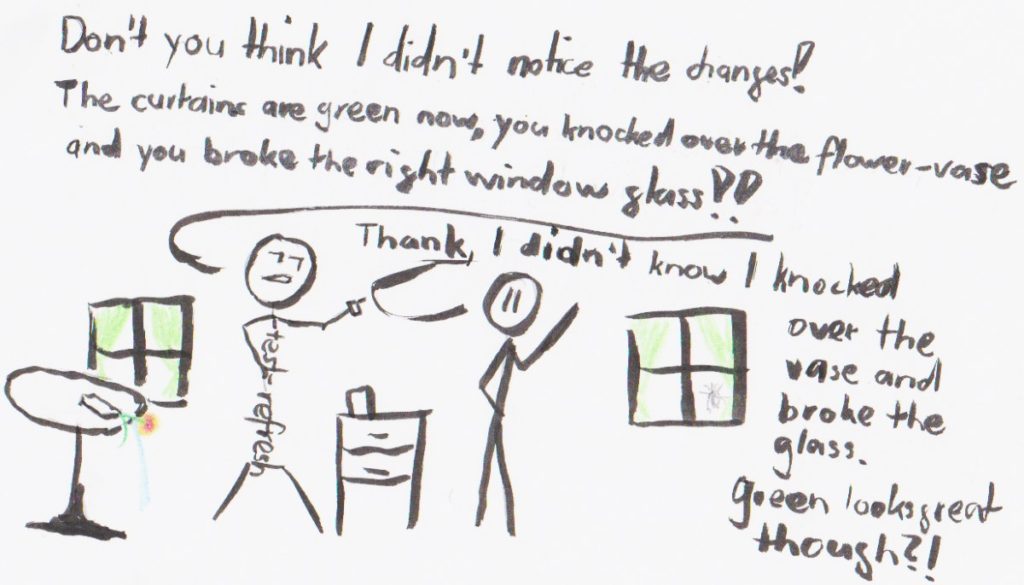 Don't you think I didn't notice the changes!
The curtains are green now, you knocked over the flower-vase
and you broke the right window glass!!
Thank, I didn't know I knocked
over the
vase and
broke the
glass.
green looks great
though?!
-test-refresh